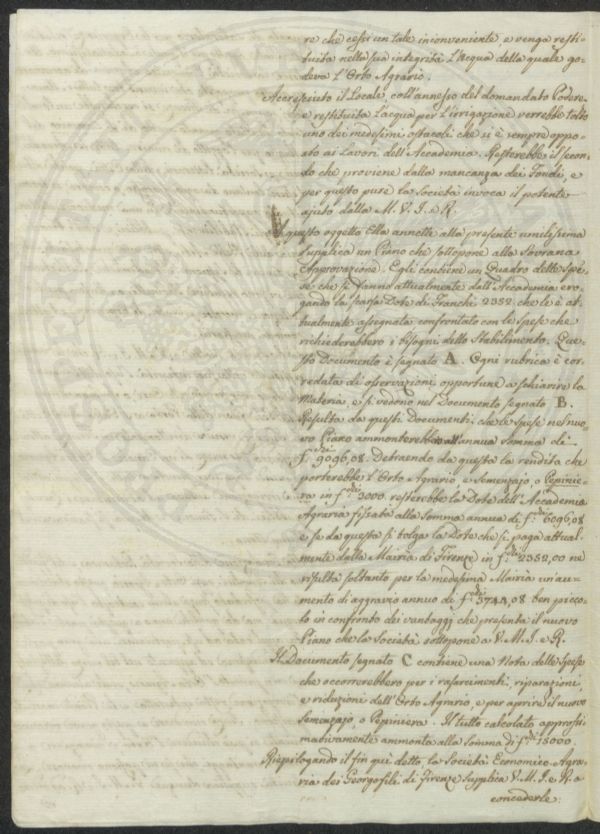 re che cessi un tale inconveniente, e venga resti-
tuita nella sua integrità l'acqua della quale go-
deva l'Orto Agrario.
Accresciuto il Locale, coll'annesso del domandato Podere
e restituita l'acqua per l'irrigazione verrebbe tolto
uno dei medesimi ostacoli che si è sempre oppo-
sto ai Lavori dell'Accademia. Resterebbe il secon-
do che proviene dalla mancanza dei Fondi, e
per questo pure la Società invoca il potente
ajuto dalla M. V. I. e R.
A questo oggetto Ella annette alla presente umilissima
supplica un Piano che sottopone alla Sovrana
Approvazione. Egli contiene un Quadro delle Spe-
se che si fanno attualmente dall'Accademia ero-
gando la scarsa Dote di Franchi 2352 che le è at-
tualmente assegnata confrontato con le spese che
richiederebbero i bisogni dello Stabilimento. Que-
sto Documento è segnato A. Ogni rubrica è cor-
redata di osservazioni opportune a schiarire la
materia, e si vedono nel Documento segnato B.
Resulta da questi Documenti, che le spese nel nuo-
vo Piano ammonterebbero all'annua somma di
f.chi 9096,08. Detraendo da questa la rendita che
porterebbe l'Orto Agrario, e Semenzajo, o Pepinie-
ra in f.chi 3000. resterebbe la Dote dell'Accademia
Agraria fissata alla somma annua di f.chi 6096,08
e se da questa si tolga la Dote che si paga attual-
mente dalla Mairia di Firenze in f.chi 2352,00 ne
risulta soltanto per la medesima Mairia un au-
mento di aggravio annuo di f.chi 3744,08 ben picco-
lo in confronto dei vantaggj che presenta il nuovo
Piano che la Società sottopone a V. M. I. e R.
Il Documento segnato C contiene una Nota delle Spese
che occorrerebbero per i rasarcimenti, riparazioni,
e riduzioni dell'Orto Agrario, e per aprire il nuovo
Semenzajo, o Pepiniera. Il tutto calcolato approssi-
mativamente ammonta alla somma di f.chi 15000.
Riepilogando il fin qui detto, la Società Economico-Agra-
ria dei Georgofili di Firenze supplica V. M. I. e R. a
concederle: